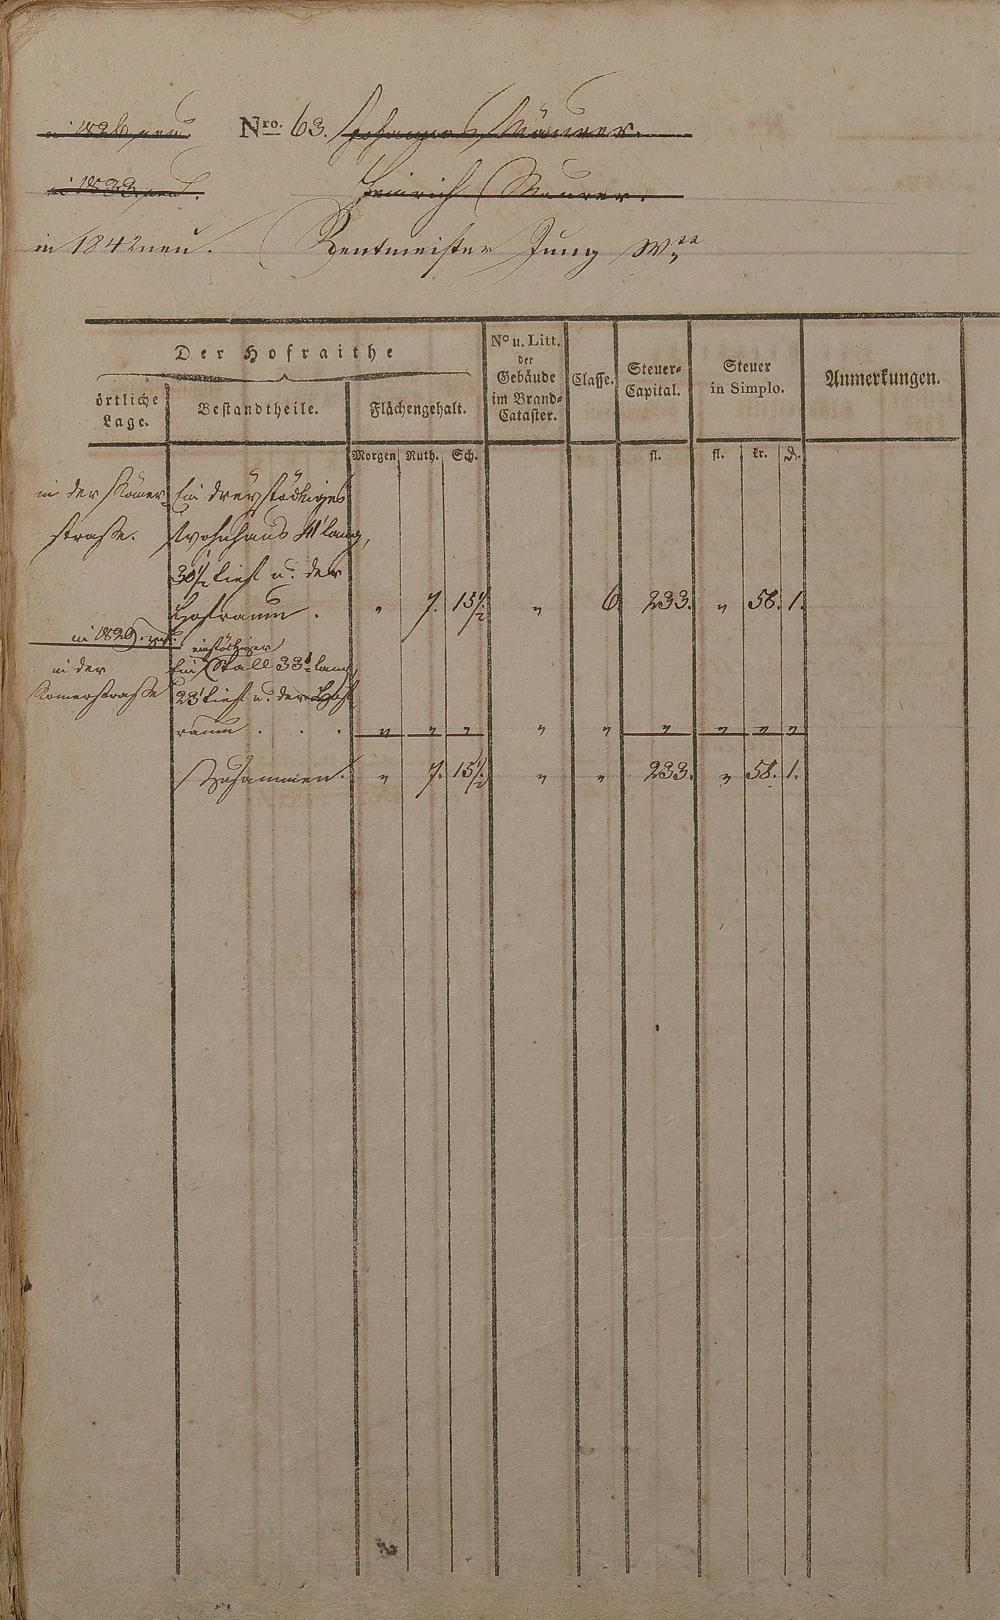 in 1826 neu. Nro. 63. Johannes Maurer.
in 1833 neu. Heinrich Maurer.
in 1842 neu. Rentmeister Jung Wee
Der Hofraithe
örtliche Lage.
Bestandtheile.
Flächengehalt.
No u. Litt. der Gebäude im Brand-Cataster.
Classe.
Steuer-Capital.
Steuer in Simplo.
Anmerkungen.
Morgen Ruth. Sch. fl. fl. kr. d.
in der Römer- Ein dreystöckiges
straße. Wohnhaus 41' lang,
30½ tief u. der
Hofraum . " 7. 15½ " 6 233. " 58. 1.
in 1829.
einstöckiger
in der Ein Stall 33' lang,
Römerstraße 23' tief u. der Hof-
raum . . . " " " " " " " " "
Zusammen. " 7. 15½ " " 233. " 58. 1.